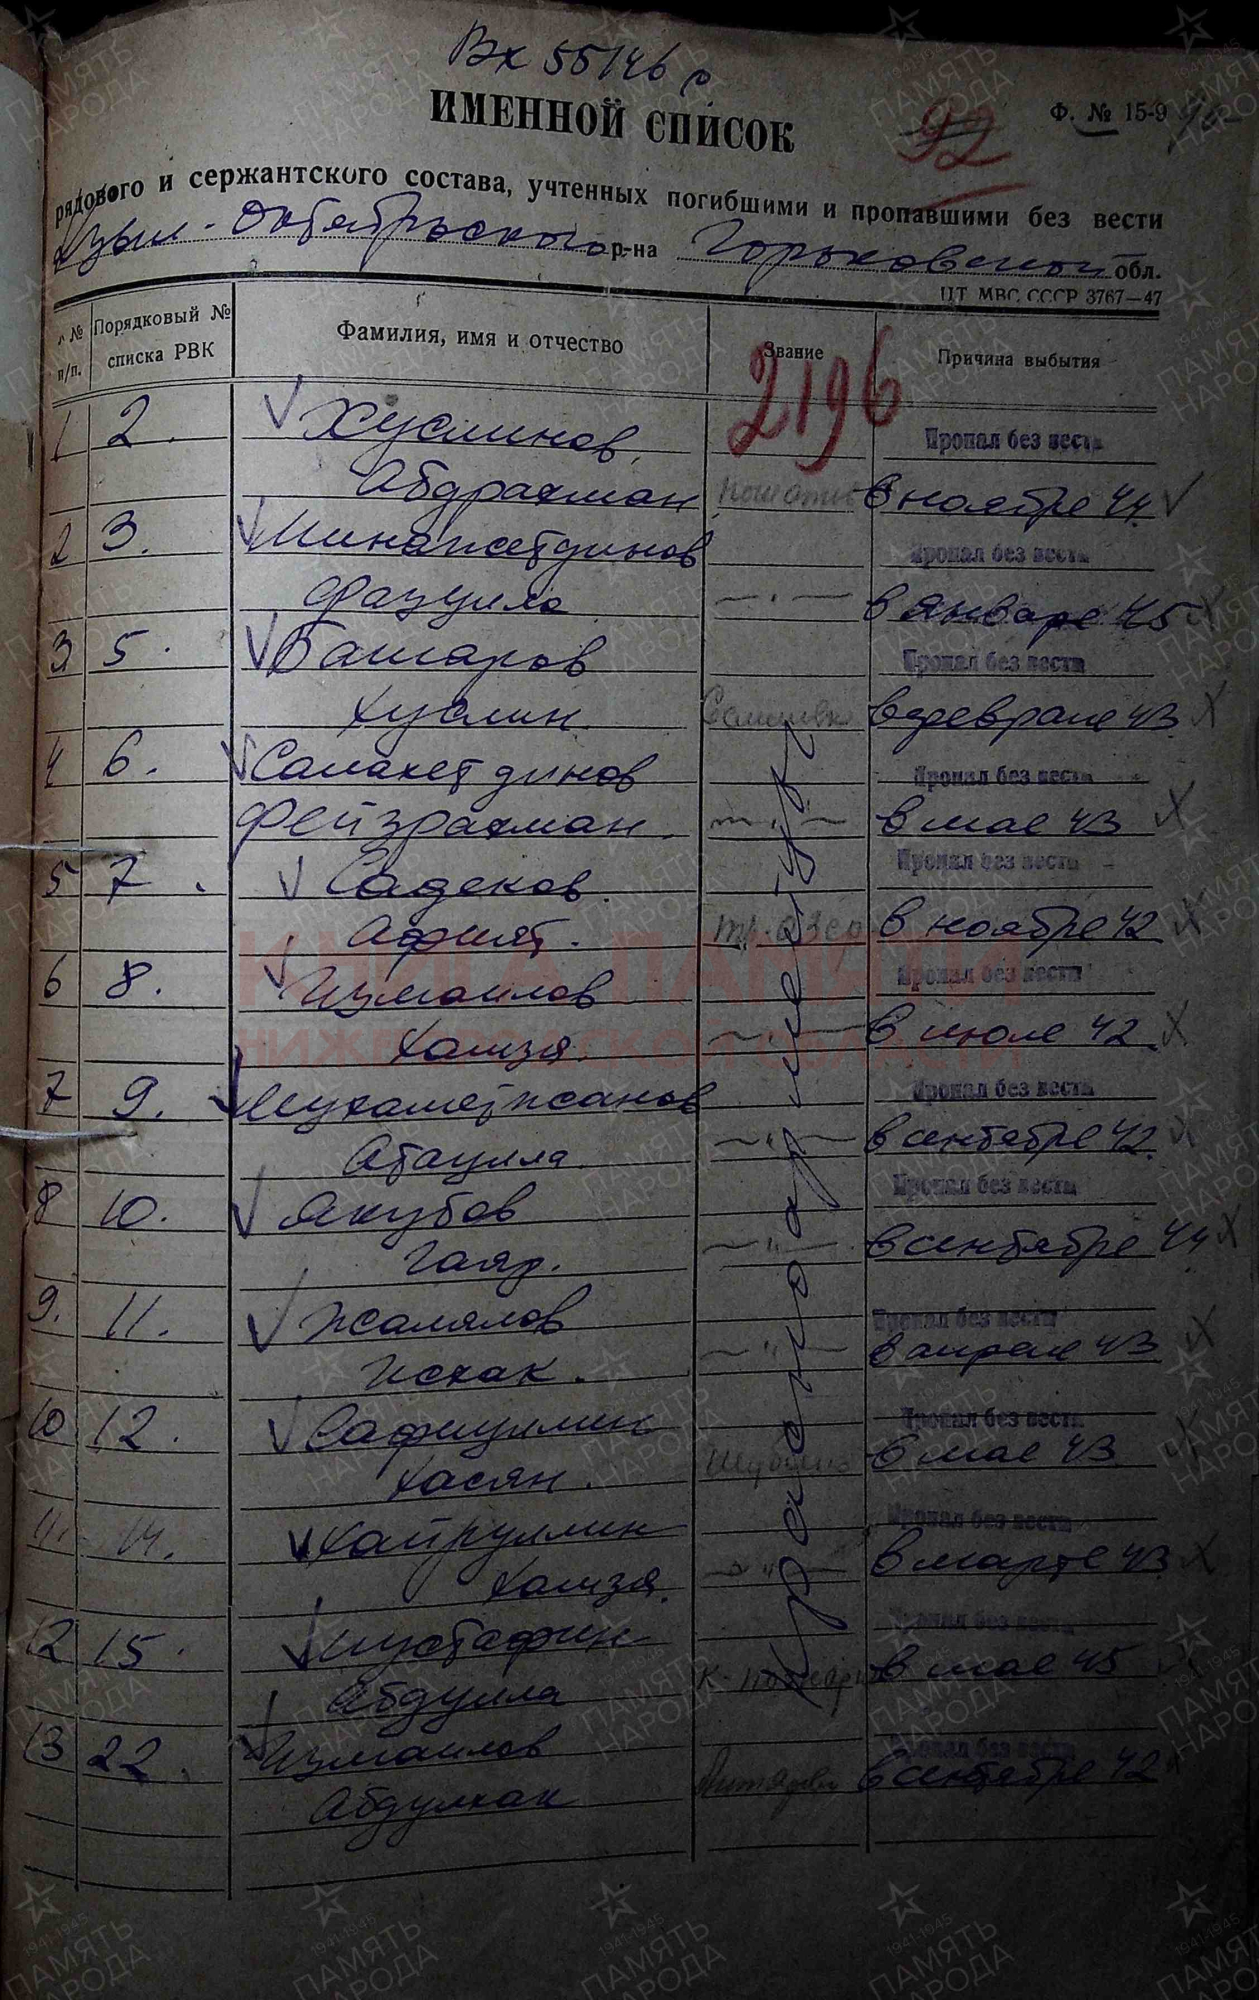 Вх 55146 с
ИМЕННОЙ СПИСОК
92
Ф. № 15-9
рядового и сержантского состава, учтенных погибшими и пропавшими без вести
Кзыл-Октябрьского р-на Горьковской обл.
ЦТ МВС СССР 3767—47
№ п/п. Порядковый № списка РВК Фамилия, имя и отчество Звание Причина выбытия
2196
1 2. Хуслинов Пропал без вести
Абдрахман в ноябре 44
2 3. Минажетдинов Пропал без вести
Фазулла —"— в январе 45
3 5. Башаров Пропал без вести
Хуслин в феврале 43
4 6. Салахетдинов Пропал без вести
Фейзрахман —"— в мае 43
5 7. Садеков Пропал без вести
Афият. в ноябре 42
6 8. Измаилов Пропал без вести
Хамзя. —"— в июле 42
7 9. Мухаметжанов Пропал без вести
Абаулла —"— в сентябре 42
8 10. Якубов Пропал без вести
Гаяр. —"— в сентябре 44
9. 11. Жалялов Пропал без вести
Исхак. —"— в апреле 43
10 12. Сафиуллин Пропал без вести
Хасян. в мае 43
11. 14. Хайруллин Пропал без вести
Хамзя. —"— в марте 43
12 15. Мустафин Пропал без вести
Абдулла в мае 45
13 22. Измаилов Пропал без вести
Абдулхак в сентябре 42
Красноармейцы
КНИГА ПАМЯТИ
НИЖЕГОРОДСКОЙ ОБЛАСТИ
1941-1945
ПАМЯТЬ
НАРОДА